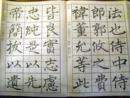 法也侍中侍
郎郭攸之費
禕董允等此
皆良實志慮
忠純是以先
帝簡拔以遺